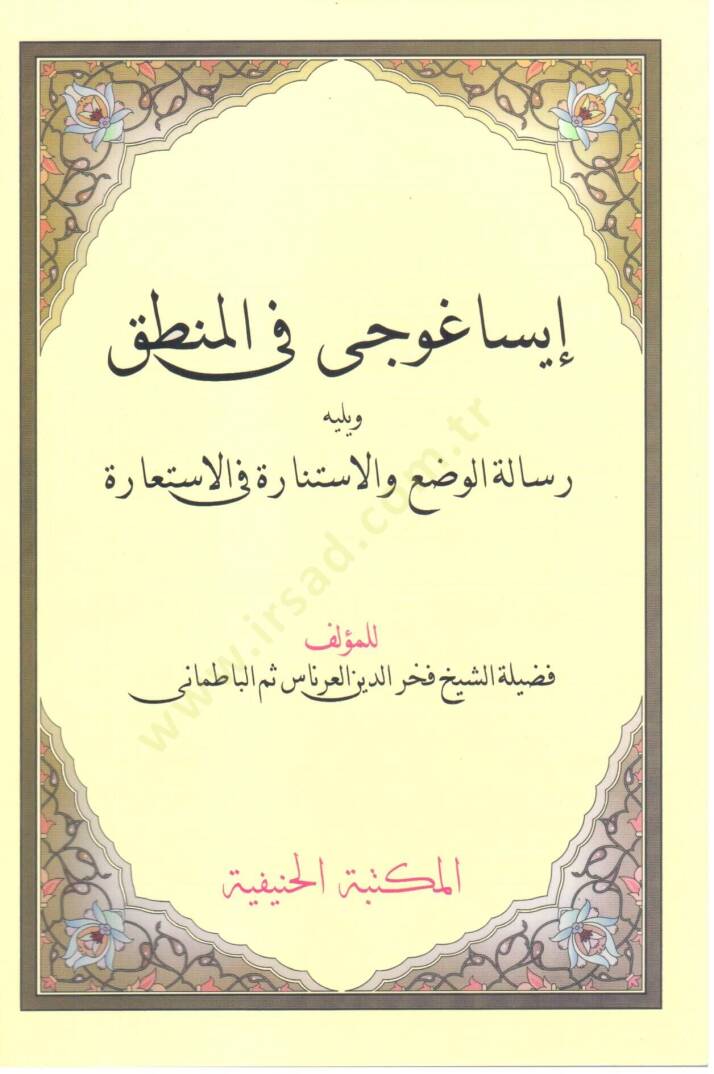 إيساغوجى فى المنطق
ويليه
رسالة الوضع والاستنارة فى الاستعارة
للمؤلف
فضيلة الشيخ فخر الدين العرناس ثم الباطمانى
المكتبة الحنيفية
www.irsad.com.tr